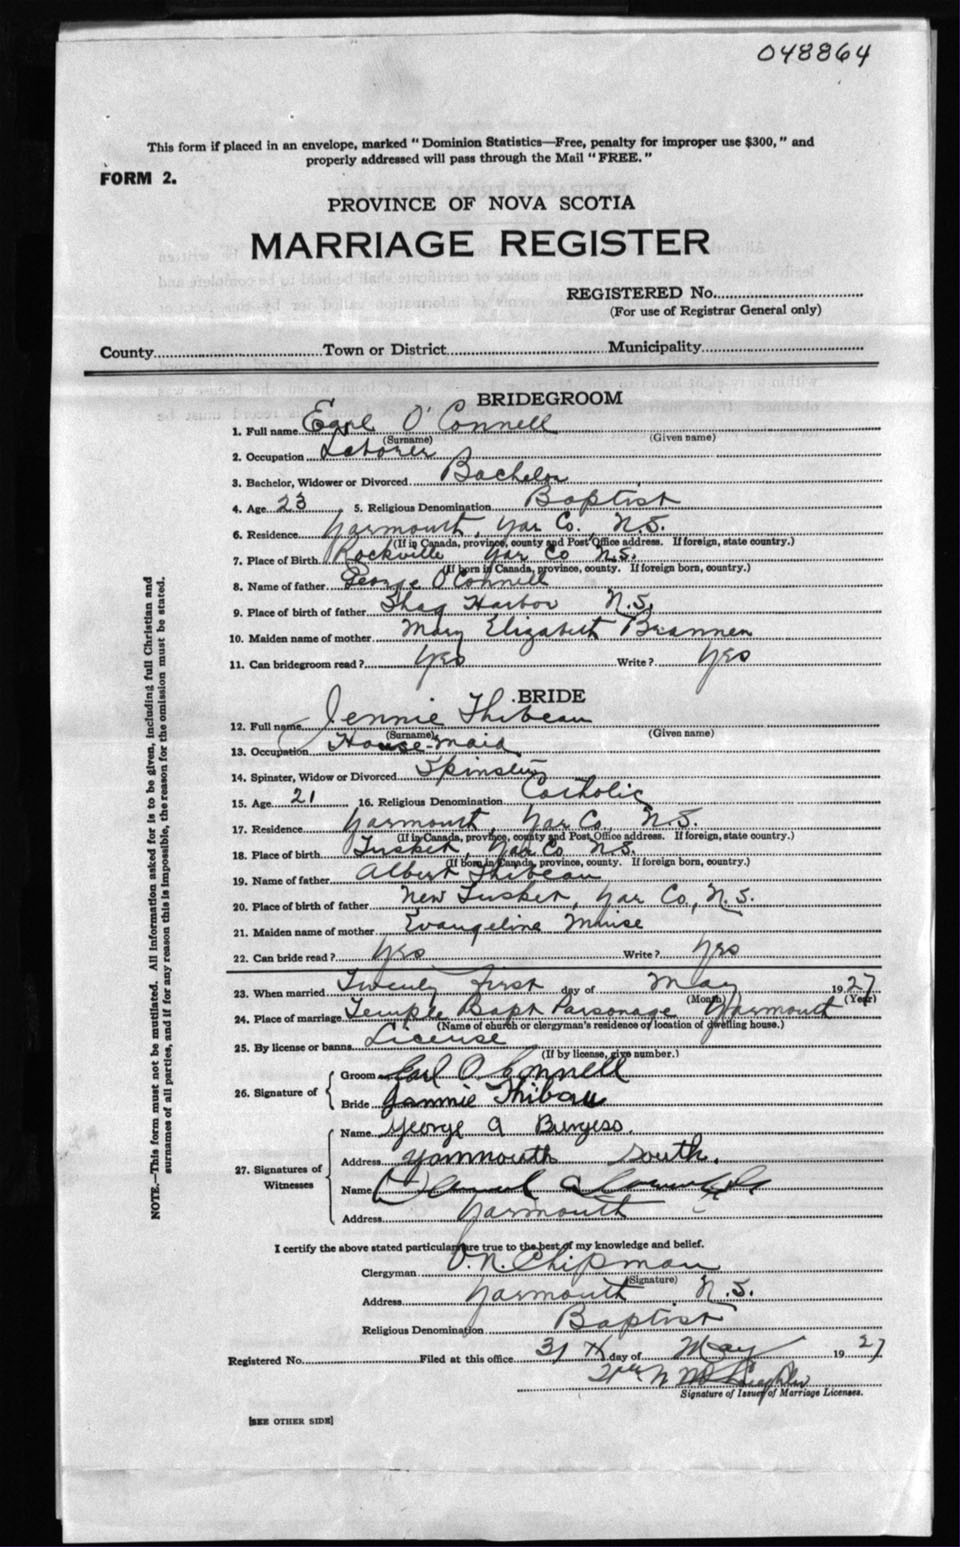 048864
This form if placed in an envelope, marked "Dominion Statistics—Free, penalty for improper use $300," and
properly addressed will pass through the Mail "FREE."
FORM 2.
PROVINCE OF NOVA SCOTIA
MARRIAGE REGISTER
REGISTERED No.
(For use of Registrar General only)
County Town or District Municipality
BRIDEGROOM
1. Full name Earl O'Connell
(Surname) (Given name)
2. Occupation Laborer
3. Bachelor, Widower or Divorced Bachelor
4. Age 23 5. Religious Denomination Baptist
6. Residence Yarmouth, Yar Co., N.S.
(If in Canada, province, county and Post Office address. If foreign, state country.)
7. Place of Birth Rockville Yar Co N.S.
(If born in Canada, province, county. If foreign born, country.)
8. Name of father George O'Connell
9. Place of birth of father Shag Harbor N.S.
10. Maiden name of mother Mary Elizabeth Brannen
11. Can bridegroom read? Yes Write? Yes
BRIDE
12. Full name Jennie Thibeau
(Surname) (Given name)
13. Occupation House-maid
14. Spinster, Widow or Divorced Spinster
15. Age 21 16. Religious Denomination Catholic
17. Residence Yarmouth, Yar Co, N.S.
(If in Canada, province, county and Post Office address. If foreign, state country.)
18. Place of birth Tusket, Yar Co N.S.
(If born in Canada, province, county. If foreign born, country.)
19. Name of father Albert Thibeau
20. Place of birth of father New Tusket, Yar Co., N.S.
21. Maiden name of mother Evangeline Muise
22. Can bride read? Yes Write? Yes
23. When married Twenty first day of May 1927
(Month) (Year)
24. Place of marriage Temple Bapt Parsonage Yarmouth
(Name of church or clergyman's residence or location of dwelling house.)
25. By license or banns License
(If by license, give number.)
26. Signature of Groom Earl O Connell
Bride Jannie Thibau
27. Signatures of Witnesses Name George A Burgess.
Address Yarmouth South.
Name
Address Yarmouth
I certify the above stated particulars are true to the best of my knowledge and belief.
Clergyman O.N. Chipman
(Signature)
Address Yarmouth N.S.
Religious Denomination Baptist
Registered No. Filed at this office 31 day of May 1927
Signature of Issuer of Marriage Licenses.
[SEE OTHER SIDE]
NOTE.—This form must not be mutilated. All information asked for is to be given, including full Christian and
surnames of all parties, and if for any reason this is impossible, the reason for the omission must be stated.